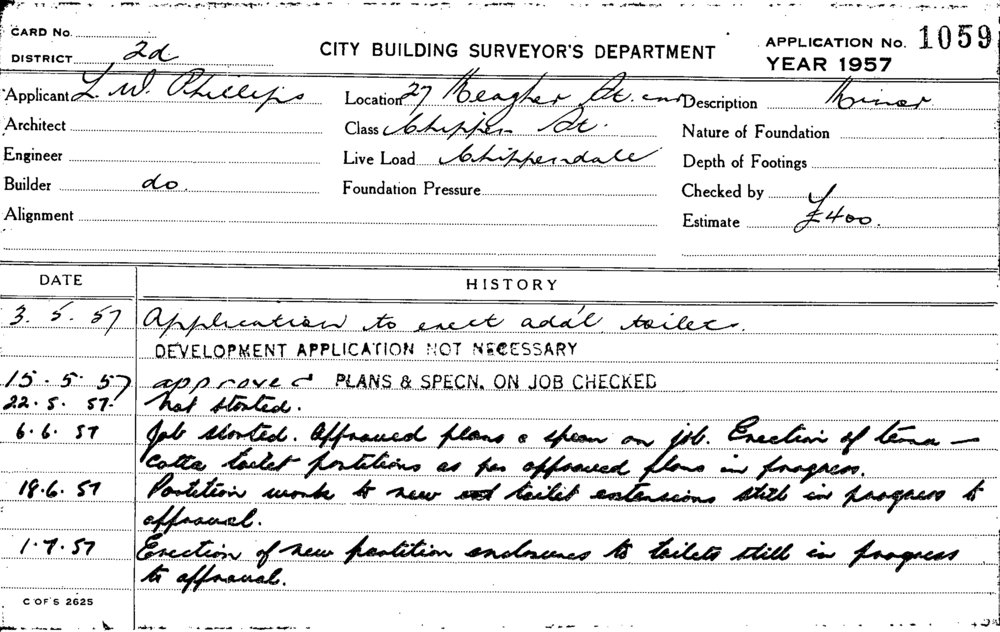 CARD No.
DISTRICT 2d
CITY BUILDING SURVEYOR'S DEPARTMENT
APPLICATION No. 1059
YEAR 1957
Applicant L W. Phillips
Location 27 Meagher St. cnr
Description Minor
Architect
Class Chippen St.
Nature of Foundation
Engineer
Live Load Chippendale
Depth of Footings
Builder do.
Foundation Pressure
Checked by
Alignment
Estimate £400.
DATE HISTORY
3. 5. 57 Application to erect add'l toilets.
DEVELOPMENT APPLICATION NOT NECESSARY
15. 5. 57 approved PLANS & SPECN. ON JOB CHECKED
22. 5. 57. Not started.
6. 6. 57 Job started. Approved plans & specn on job. Erection of terra —
cotta toilet partitions as per approved plans in progress.
18. 6. 57 Partition work to new toilet extensions still in progress to
approval.
1. 7. 57 Erection of new partition enclosures to toilets still in progress
to approval.
C OF S 2625